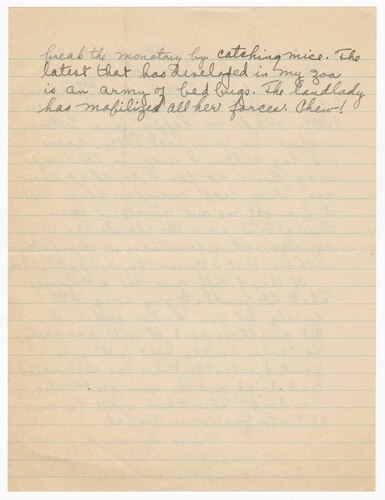 break the monotony by catching mice. The
latest that has developed in my zoa
is an army of bed bugs. The Landlady
has mobilized all her forces. Chew!